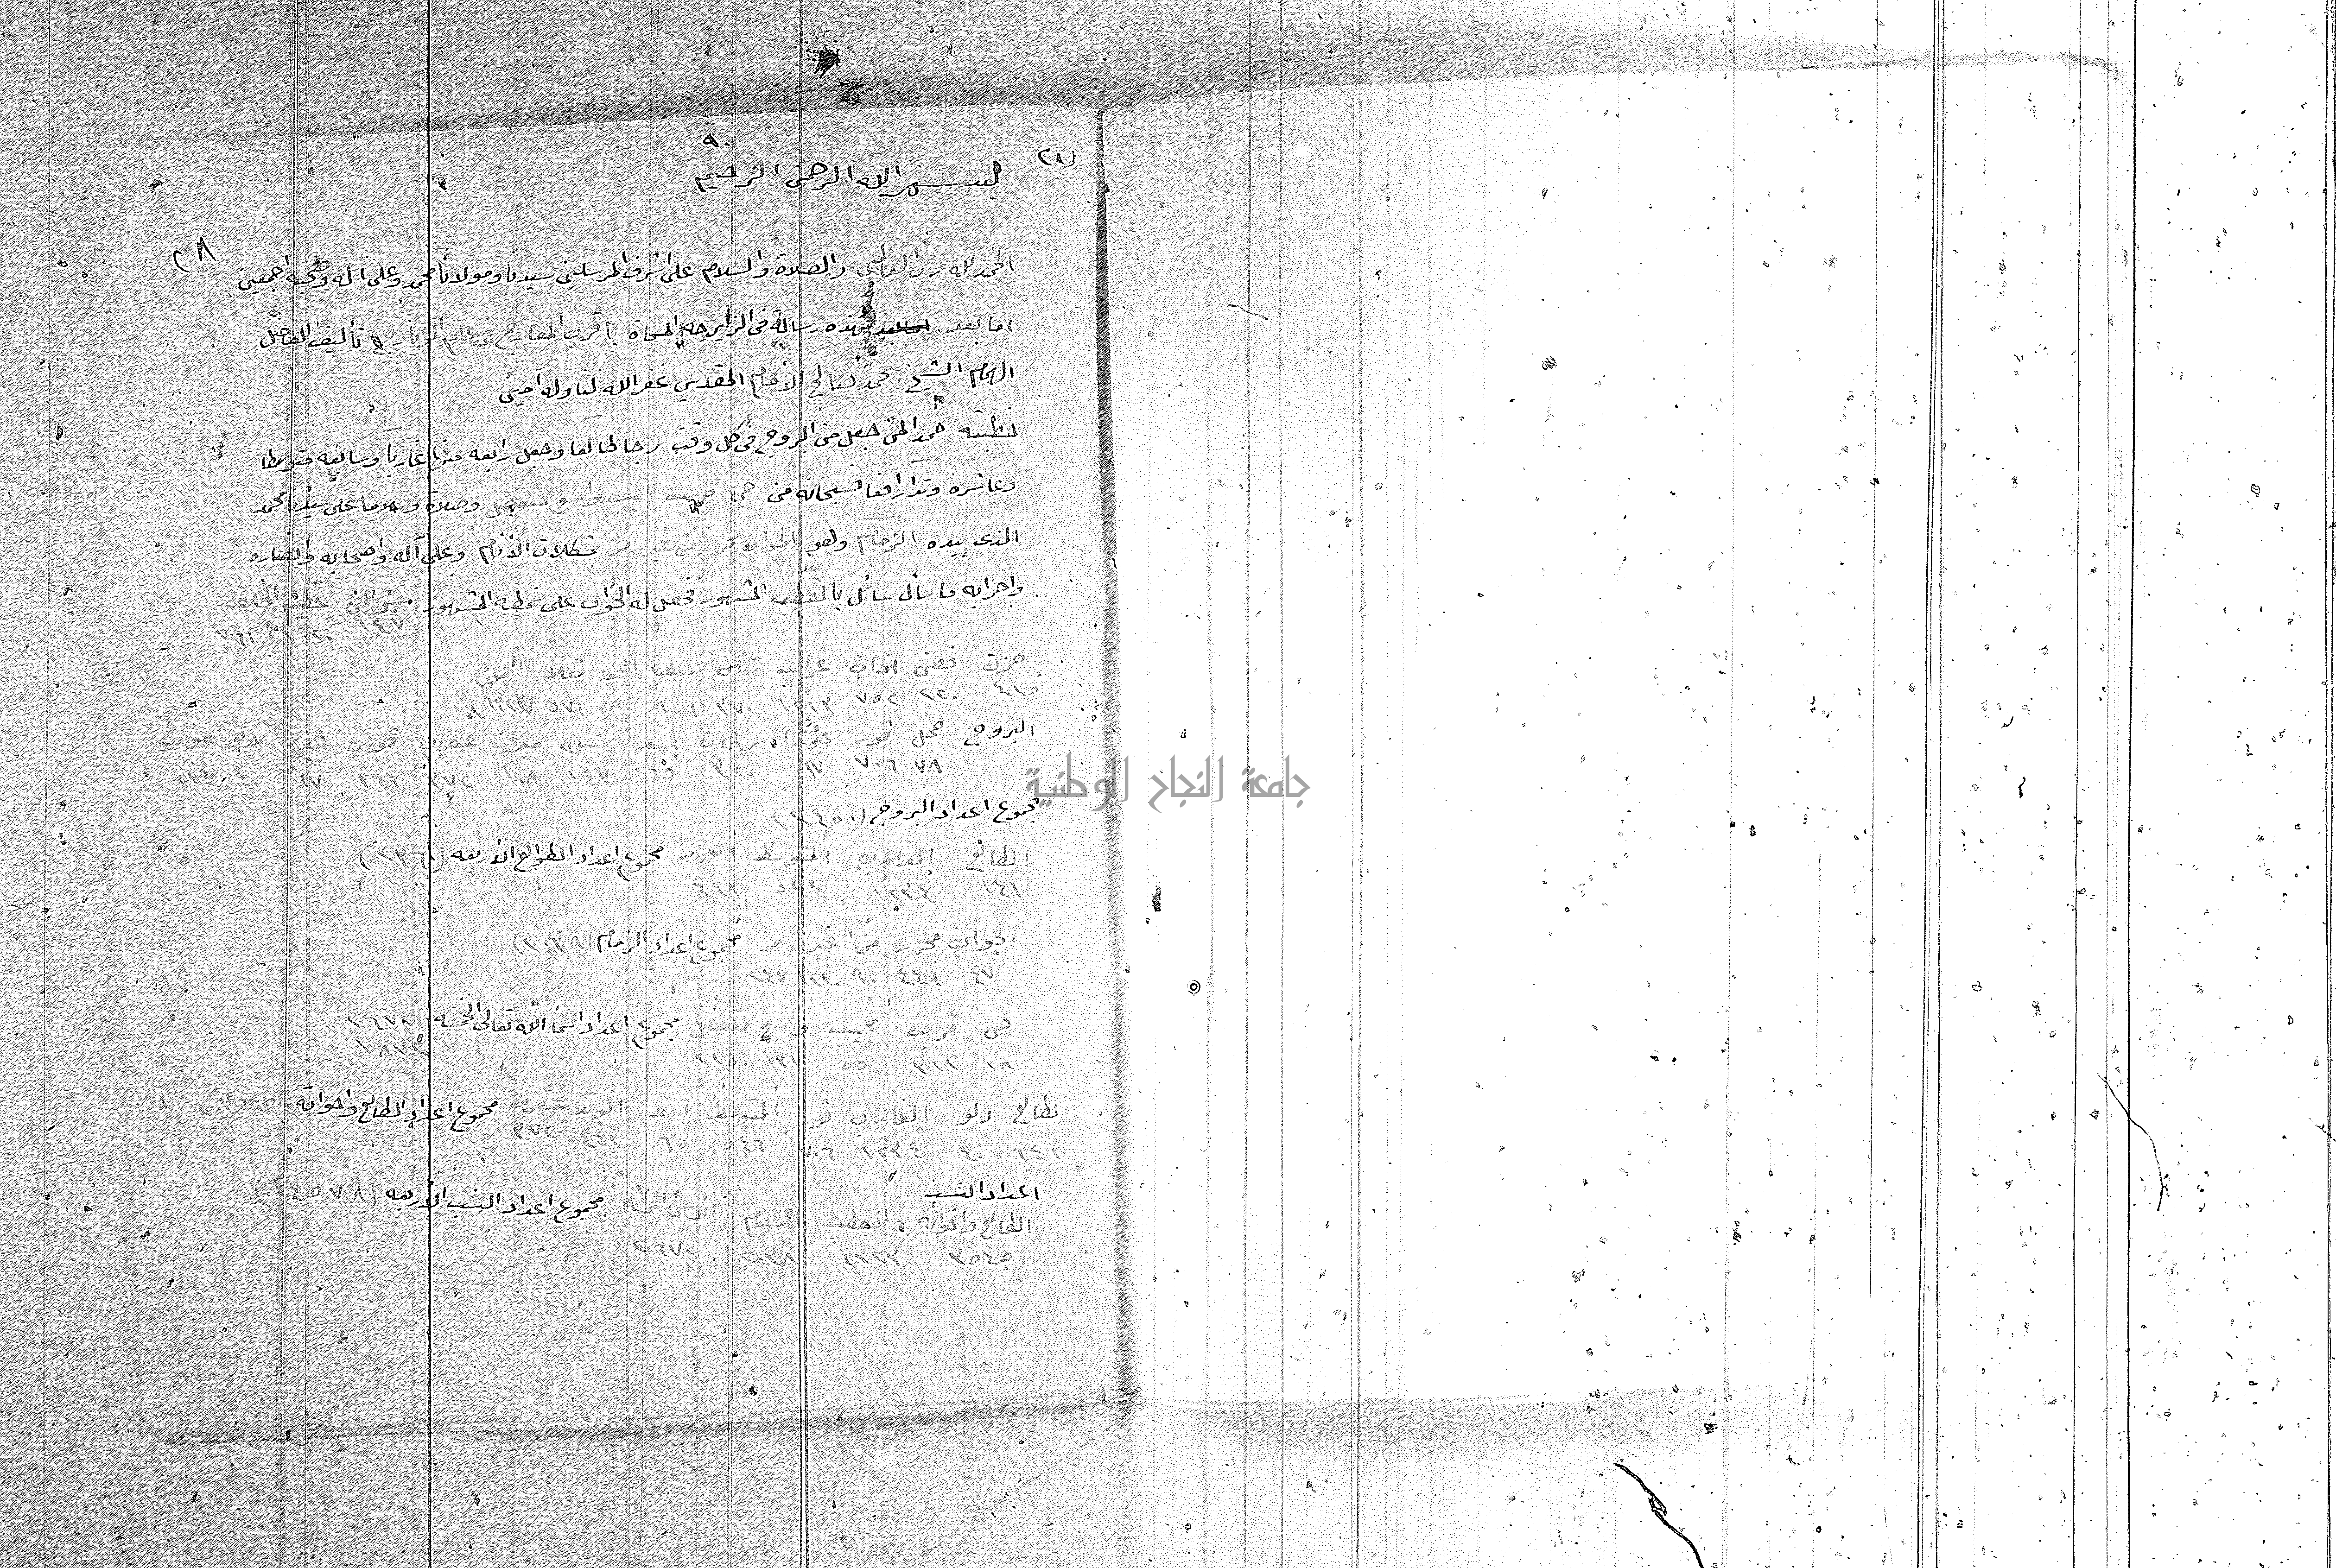 ٩٠
٢٨
بسم الله الرحمن الرحيم
٢٨
الحمد لله رب العالمين والصلاة والسلام على اشرف المرسلين سيدنا ومولانا محمد وعلى اله وصحبه اجمعين
اما بعد فهذه رسالة في الزايرجه المسماة باقرب المعارج في علم الزيارج تأليف الفاضل
الهمام الشيخ محمد صالح الامام المقدسي غفر الله لنا وله آمين
خطبته حمدا لمن جعل من البروج في كل وقت برجا طالعا وجعل رابعه غاربا وسابعه متوسطا
وعاشره وتدا رافعا فسبحانه من حي قريب مجيب واسع متفضل وصلاة وسلاما على سيدنا محمد
الذي بيده الزمام وهو الجواب محرر من غير رمز مشكلات الانام وعلى آله واصحابه وانصاره
واحزابه ما سأل سائل بالقطب المشهور فحصل له الجواب على نمطه المشهور سؤال عظيم الخلق
٧٦١ ١٤٧
حزت فصن اذان غرائب شك ضبطه الجد مثلا المجموع
٥٧١ ٣٧٠ ٧٥٢ ٤١٥ (٦٣٢٣)
البروج حمل ثور جوزا سرطان اسد سنبله ميزان عقرب قوس جدي دلو حوت
٧٨ ٧٠٦ ١٧ ٣٢٠ ٦٥ ١٤٧ ١٠٨ ٣٧٢ ١٦٦ ١٧ ٤٠ ٤١٤
مجموع اعداد البروج (٢٤٥٠)
الطالع الغارب المتوسط الوتد مجموع اعداد الطوالع الاربعه
١٤١ ١٢٣٤ ٤٤١
الجواب محرر من غير رمز مجموع اعداد الزمام (٢٠٣٨)
٤٧ ٤٤٨ ٩٠ ١٢١٠ ٢٤٧
حي قريب مجيب واسع متفضل مجموع اعداد اسما الله تعالى الخمسه ٢٦٧٢
١٨ ٣١٢ ٥٥ ١٣٧
١٨٧٣
لطالع دلو الغارب ثور المتوسط اسد الوتد عقرب مجموع اعداد الطالع واخواته (٣٥٤٥)
١٤١ ٤٠ ١٢٣٤ ٧٠٦ ٥٤٦ ٦٥ ٤٤١ ٣٧٢
اعداد النسب
الطالع واخواته القطب الزمام الاسما الخمسه مجموع اعداد النسب الاربعه (١٤٥٧٨)
٣٥٤٥ ٦٣٢٣ ٢٠٣٨ ٢٦٧٢
جامعة النجاح الوطنية